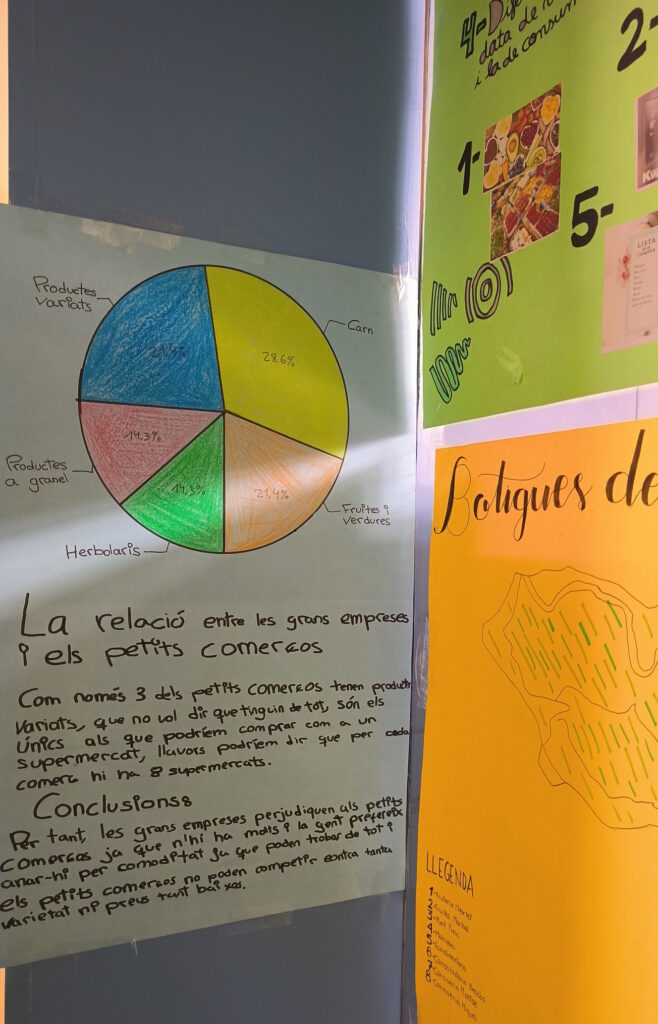 Productes
variats
21,4%
Carn
28,6%
Productes
a granel
14,3%
Herbolaris
14,3%
Fruites i
verdures
21,4%
La relació entre les grans empreses
i els petits comerços
Com només 3 dels petits comerços tenen productes
variats, que no vol dir que tinguin de tot, són els
únics als que podríem comprar com a un
supermercat, llavors podríem dir que per cada
comerç hi ha 8 supermercats.
Conclusions:
Per tant, les grans empreses perjudiquen als petits
comerços ja que n'hi ha molts i la gent prefereix
anar-hi per comoditat ja que poden trobar de tot i
els petits comerços no poden competir contra tanta
varietat ni preus tant baixos.
4-
data de
i la de consum
1-
2-
5-
LISTA
COMPRA
Botigues de
LLEGENDA